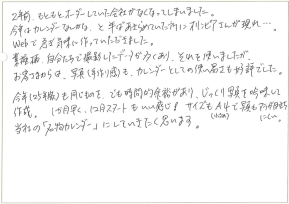 2年前、もともとオーダーしていた会社がなくなってしまいました。
今年はカレンダーなしかな、と半ばあきらめていた所にオリンピアさんが現れ…。
Webで 思う存分に作っていただきました。
業務柄、自分たちで撮影したデータが多くあり、それを使いましたが、
お客さまからは、写真(手作り感)も、カレンダーとしての使い易さも好評でした。
今年(25年版)も同じものを、でも時間的余裕があり、じっくり写真を吟味して
作成。1か月早く、12月スタートもいい感じ! サイズもA4で写真も
(小さめ) にくい。
当社の「名物カレンダー」にしていきたく思います。